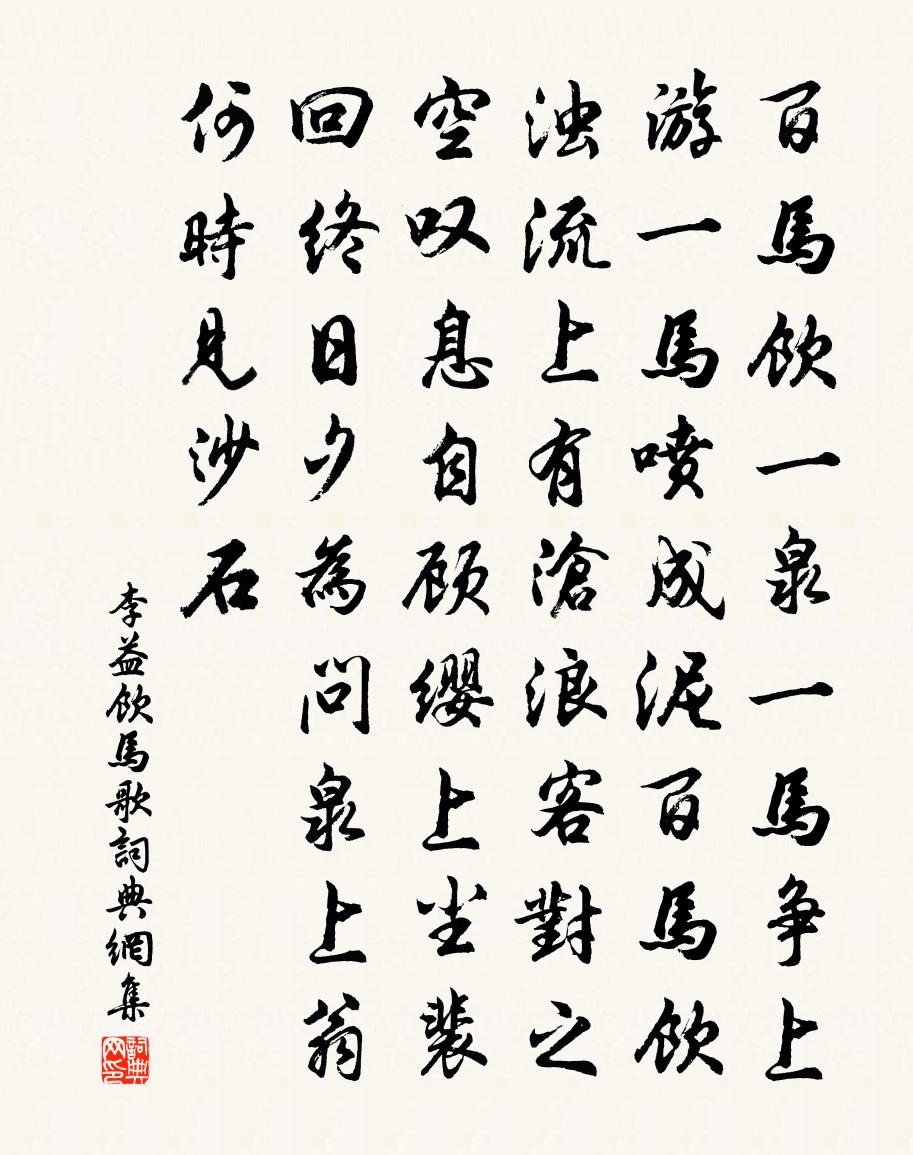 百馬飲一泉一馬争上
游一馬噴成泥百馬飲
浊流上有滄浪客對之
空叹息自顾缨上尘裴
回终日夕為問泉上翁
何時見沙石
李益飲馬歌詞典網集
詞典网印